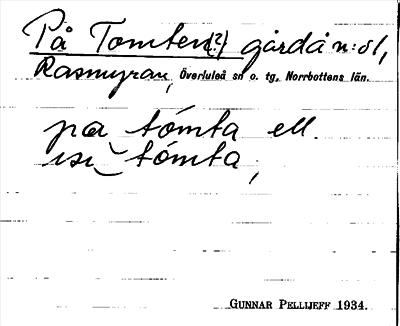 På Tomten(?) gård å n:o 1,
Rasmyran, Överluleå sn o. tg, Norrbottens län.
pa tómta ell.
isi tómta,
GUNNAR PELLIJEFF 1934.